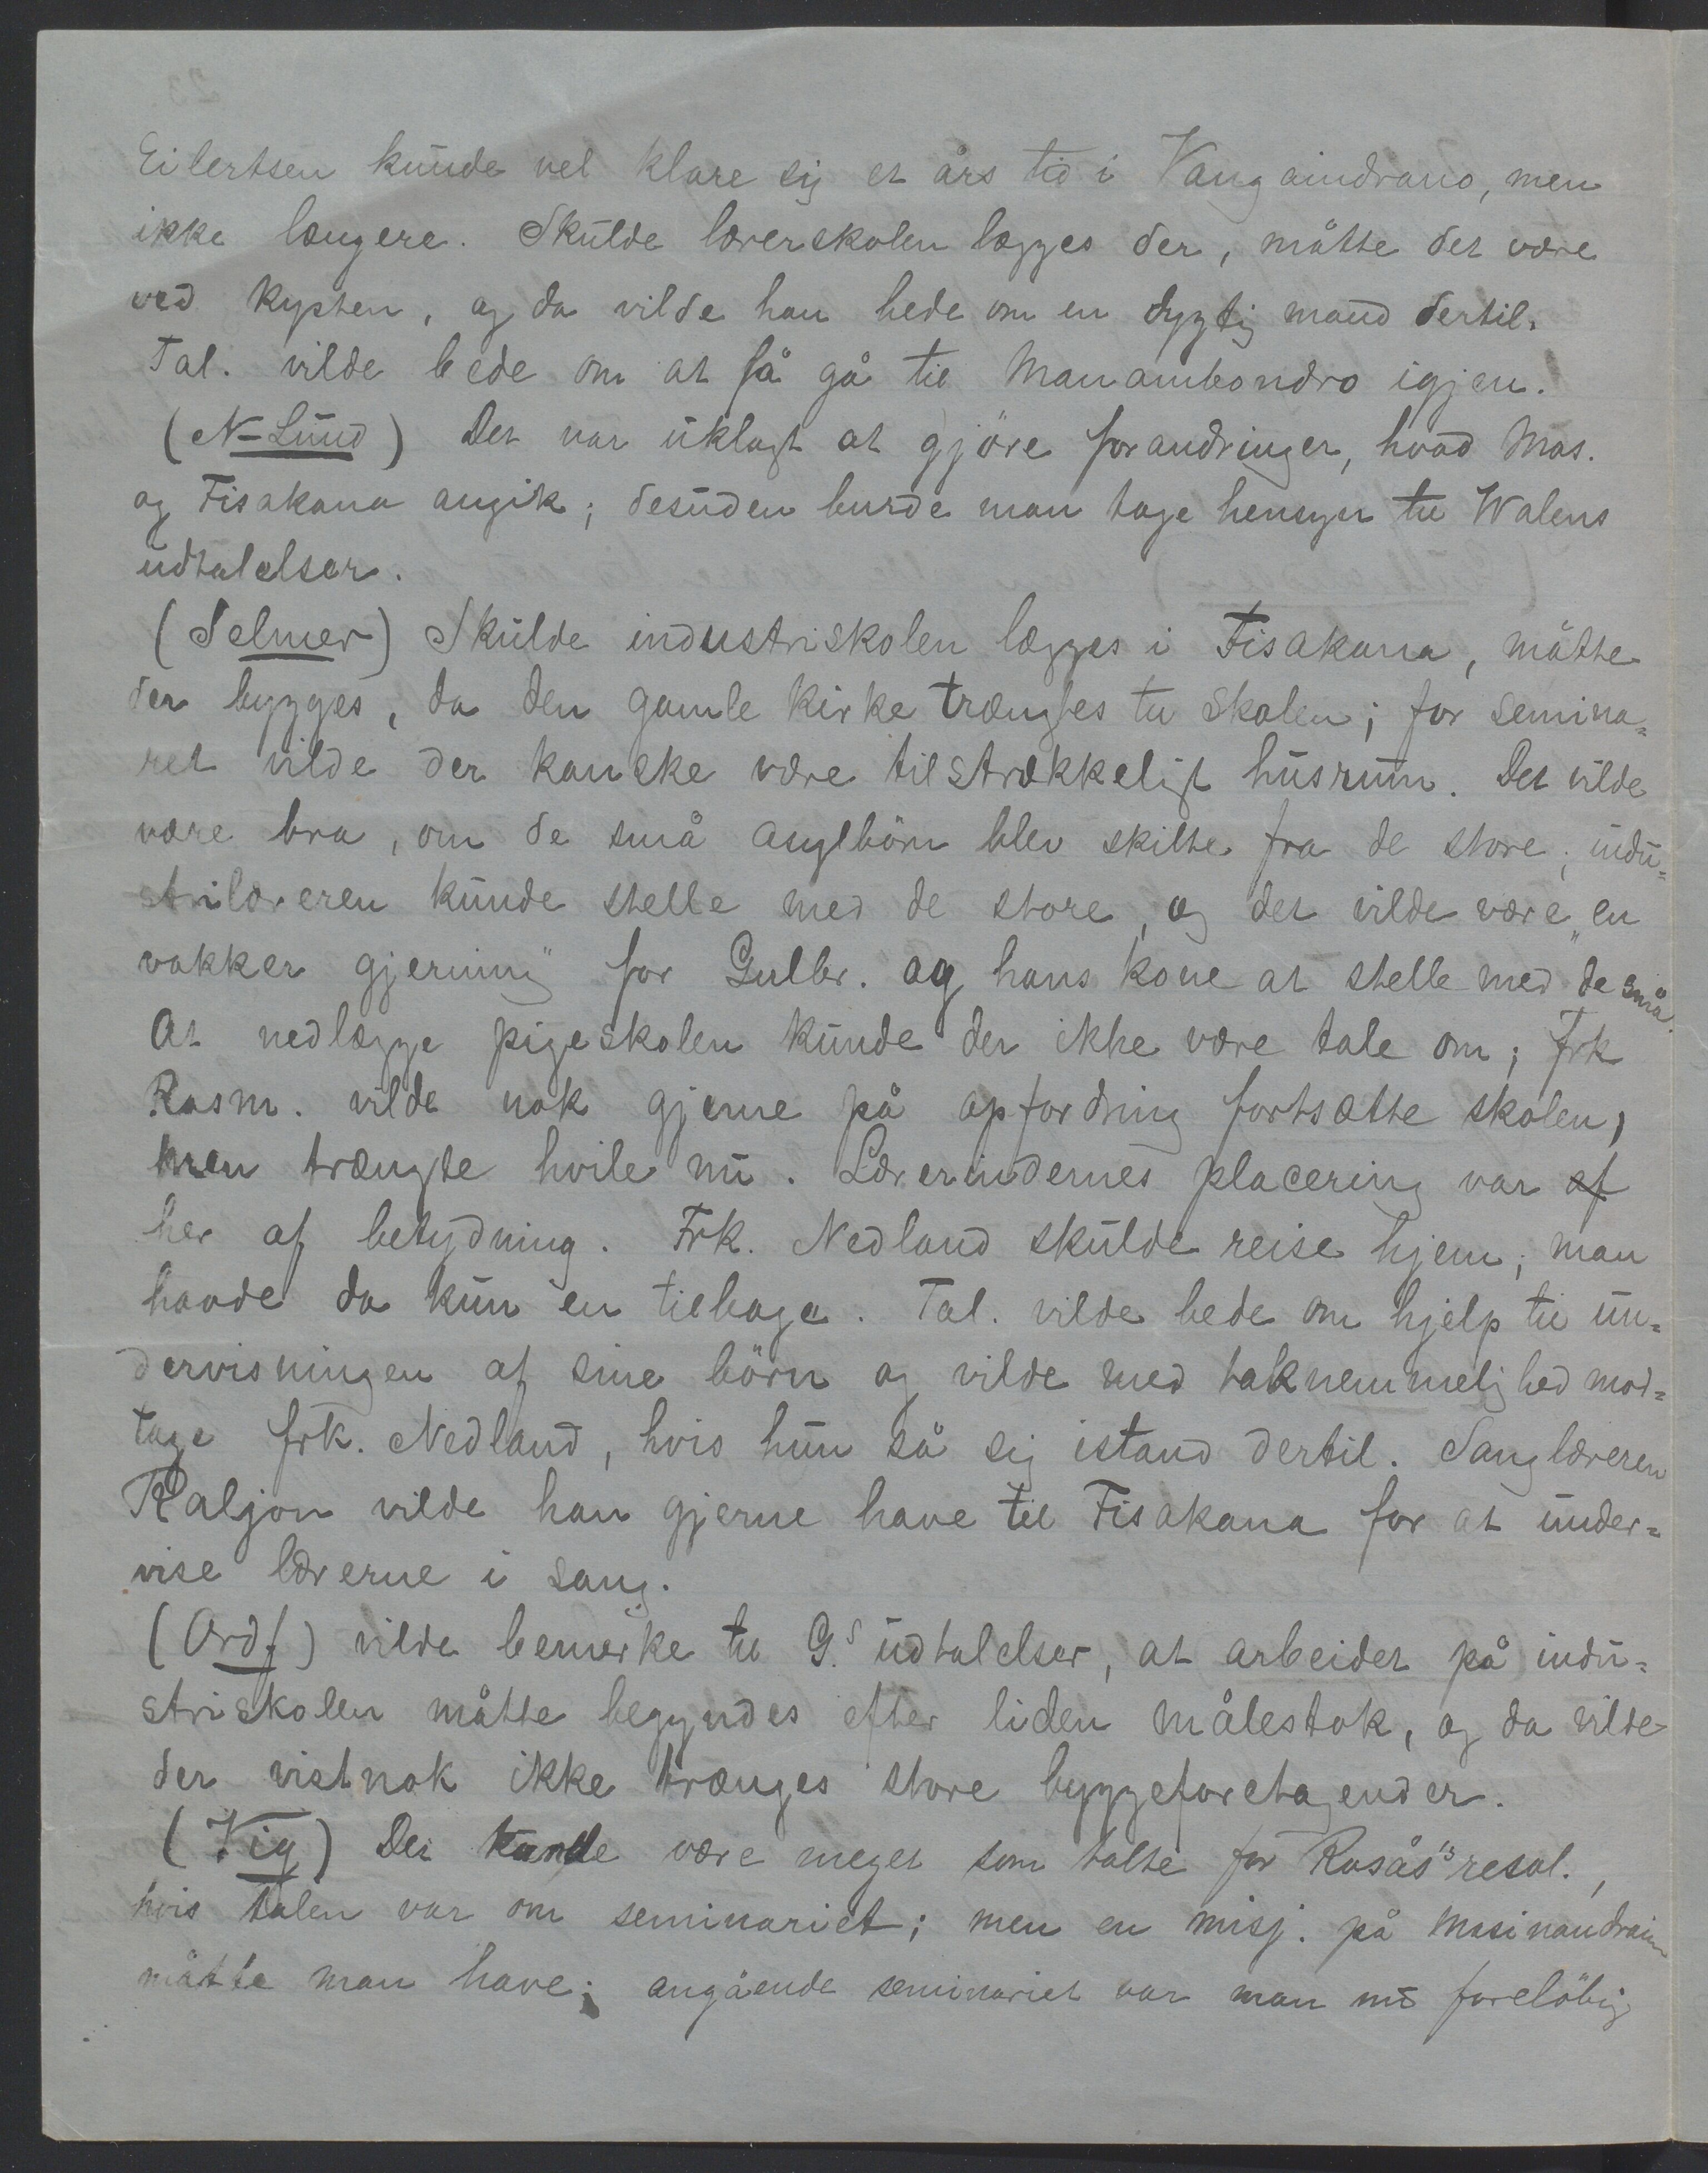 Eilertsen kunde vel klare sig et års tid i Vangaindrano, men
ikke længere. Skulde lærerskolen lægges der, måtte det være
ved kysten, og da vilde han bede om en dygtig mand dertil.
Tal. vilde bede om at få gå til Manambondro igjen.
(N-Lund) Det var uklogt at gjöre forandringer, hvad Mas.
og Fisakana angik; desuden burde man tage hensyn til Walens
udtalelser.
(Selmer) Skulde industriskolen lægges i Fisakana, måtte
der bygges, da den gamle kirke trængtes til skolen; for semina=
ret vilde der kanske være tilstrækkeligt husrum. Det vilde
være bra, om de små asylbörn blev skilte fra de store; indu=
strilæreren kunde stelle med de store, og det vilde være "en
vakker gjerning" for Gulbr. og hans kone at stelle med de små.
At nedlægge pigeskolen kunde der ikke være tale om; frk
Rasm. vilde nok gjerne på opfordring fortsætte skolen,
men trængte hvile nu. Lærerindernes placering var af
her af betydning. Frk. Nedland skulde reise hjem; man
havde da kun en tilbage. Tal. vilde bede om hjelp til un=
dervisningen af sine börn og vilde med taknemmelighed mod=
tage frk. Nedland, hvis hun så sig istand dertil. Sanglæreren
Raljon vilde han gjerne have til Fisakana for at under=
vise lærerne i sang.
(Ordf) vilde bemerke til G.s udtalelser, at arbeidet på indu=
striskolen måtte begyndes efter liden målestok, og da vilde
der vistnok ikke trænges store byggeforetagender.
(Vig) Det kunde være meget som talte for Rosås's resol.,
hvis talen var om seminariet; men en misj. på Masinandraina
måtte man have; angående seminariet var man nu forelöbig